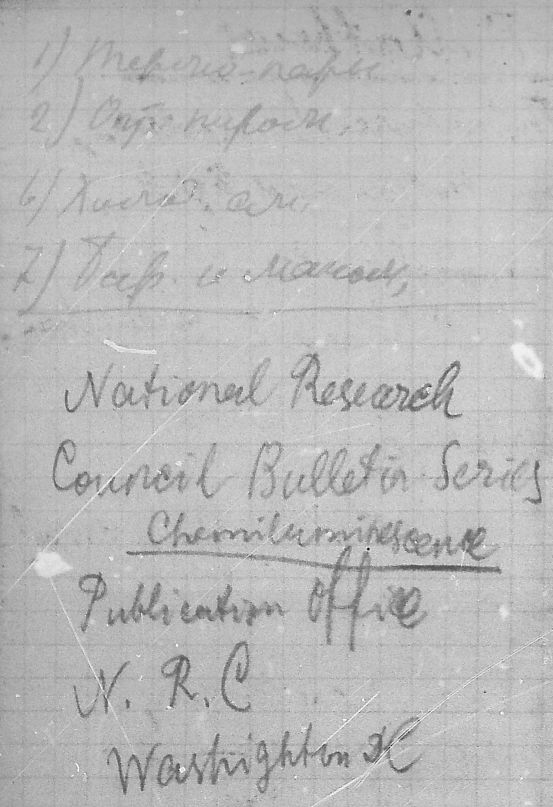 1) Термо-пары
2) Опт. пиром.
6)
7) и маном,
National Research
Council Bulletin Series
Chemiluminescence
Publication Office
N. R. C
Wastrighton DC